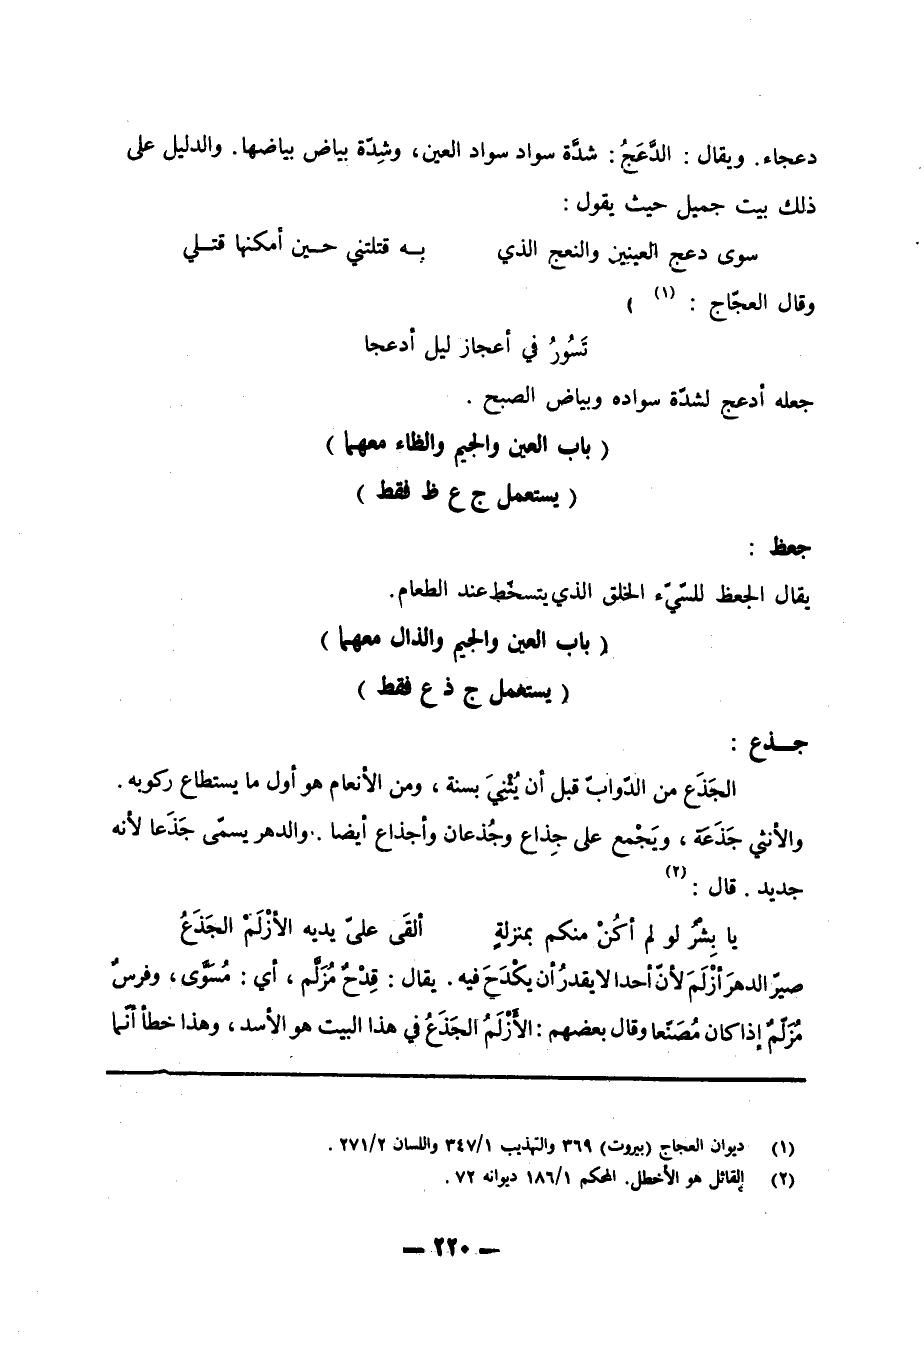 دعجاء. ويقال : الدَّعَجُ : شدَّة سواد سواد العين، وشِدّة بياض بياضها. والدليل على
ذلك بيت جميل حيث يقول :
سوى دعج العينين والنعج الذي به قتلتني حين أمكنها قتلي
وقال العجّاج : (١) )
تَسُورُ في أعجاز ليل أدعجا
جعله أدعج لشدّة سواده وبياض الصبح .
( باب العين والجيم والظاء معهما )
( يستعمل ج ع ظ فقط )
جعظ :
يقال الجعظ للسّيّء الخلق الذي يتسخّط عند الطعام.
( باب العين والجيم والذال معهما )
( يستعمل ج ذ ع فقط )
جذع :
الجَذَع من الدّوابّ قبل أن يُثْنِيَ بسنة ، ومن الأنعام هو أول ما يستطاع ركوبه .
والأنثي جَذَعَة ، ويَجْمع على جِذاع وجُذعان وأجذاع أيضا . والدهر يسمّى جَذَعا لأنه
جديد . قال : (٢)
يا بِشرُ لو لم أكُنْ منكم بمنزلةٍ ألقَى علىّ يديه الأزْلَمْ الجَذَعُ
صيرّ الدهرَ أزْلَمَ لأنّ أحدا لا يقدرُ أن يكْدَحَ فيه . يقال : قِدْحٌ مُزَلَّم ، أي : مُسَوَّى ، وفرسٌ
مُزَلّمٌ إذا كان مُصَنّعا وقال بعضهم : الأَزْلَمُ الجَذَعُ في هذا البيت هو الأسد ، وهذا خطأ أنّما
(١) ديوان العجاج (بيروت) ٣٦٩ والتهذيب ٣٤٧/١ واللسان ٢٧١/٢ .
(٢) القائل هو الأخطل. المحكم ١٨٦/١ ديوانه ٧٢ .
— ٢٢٠ —